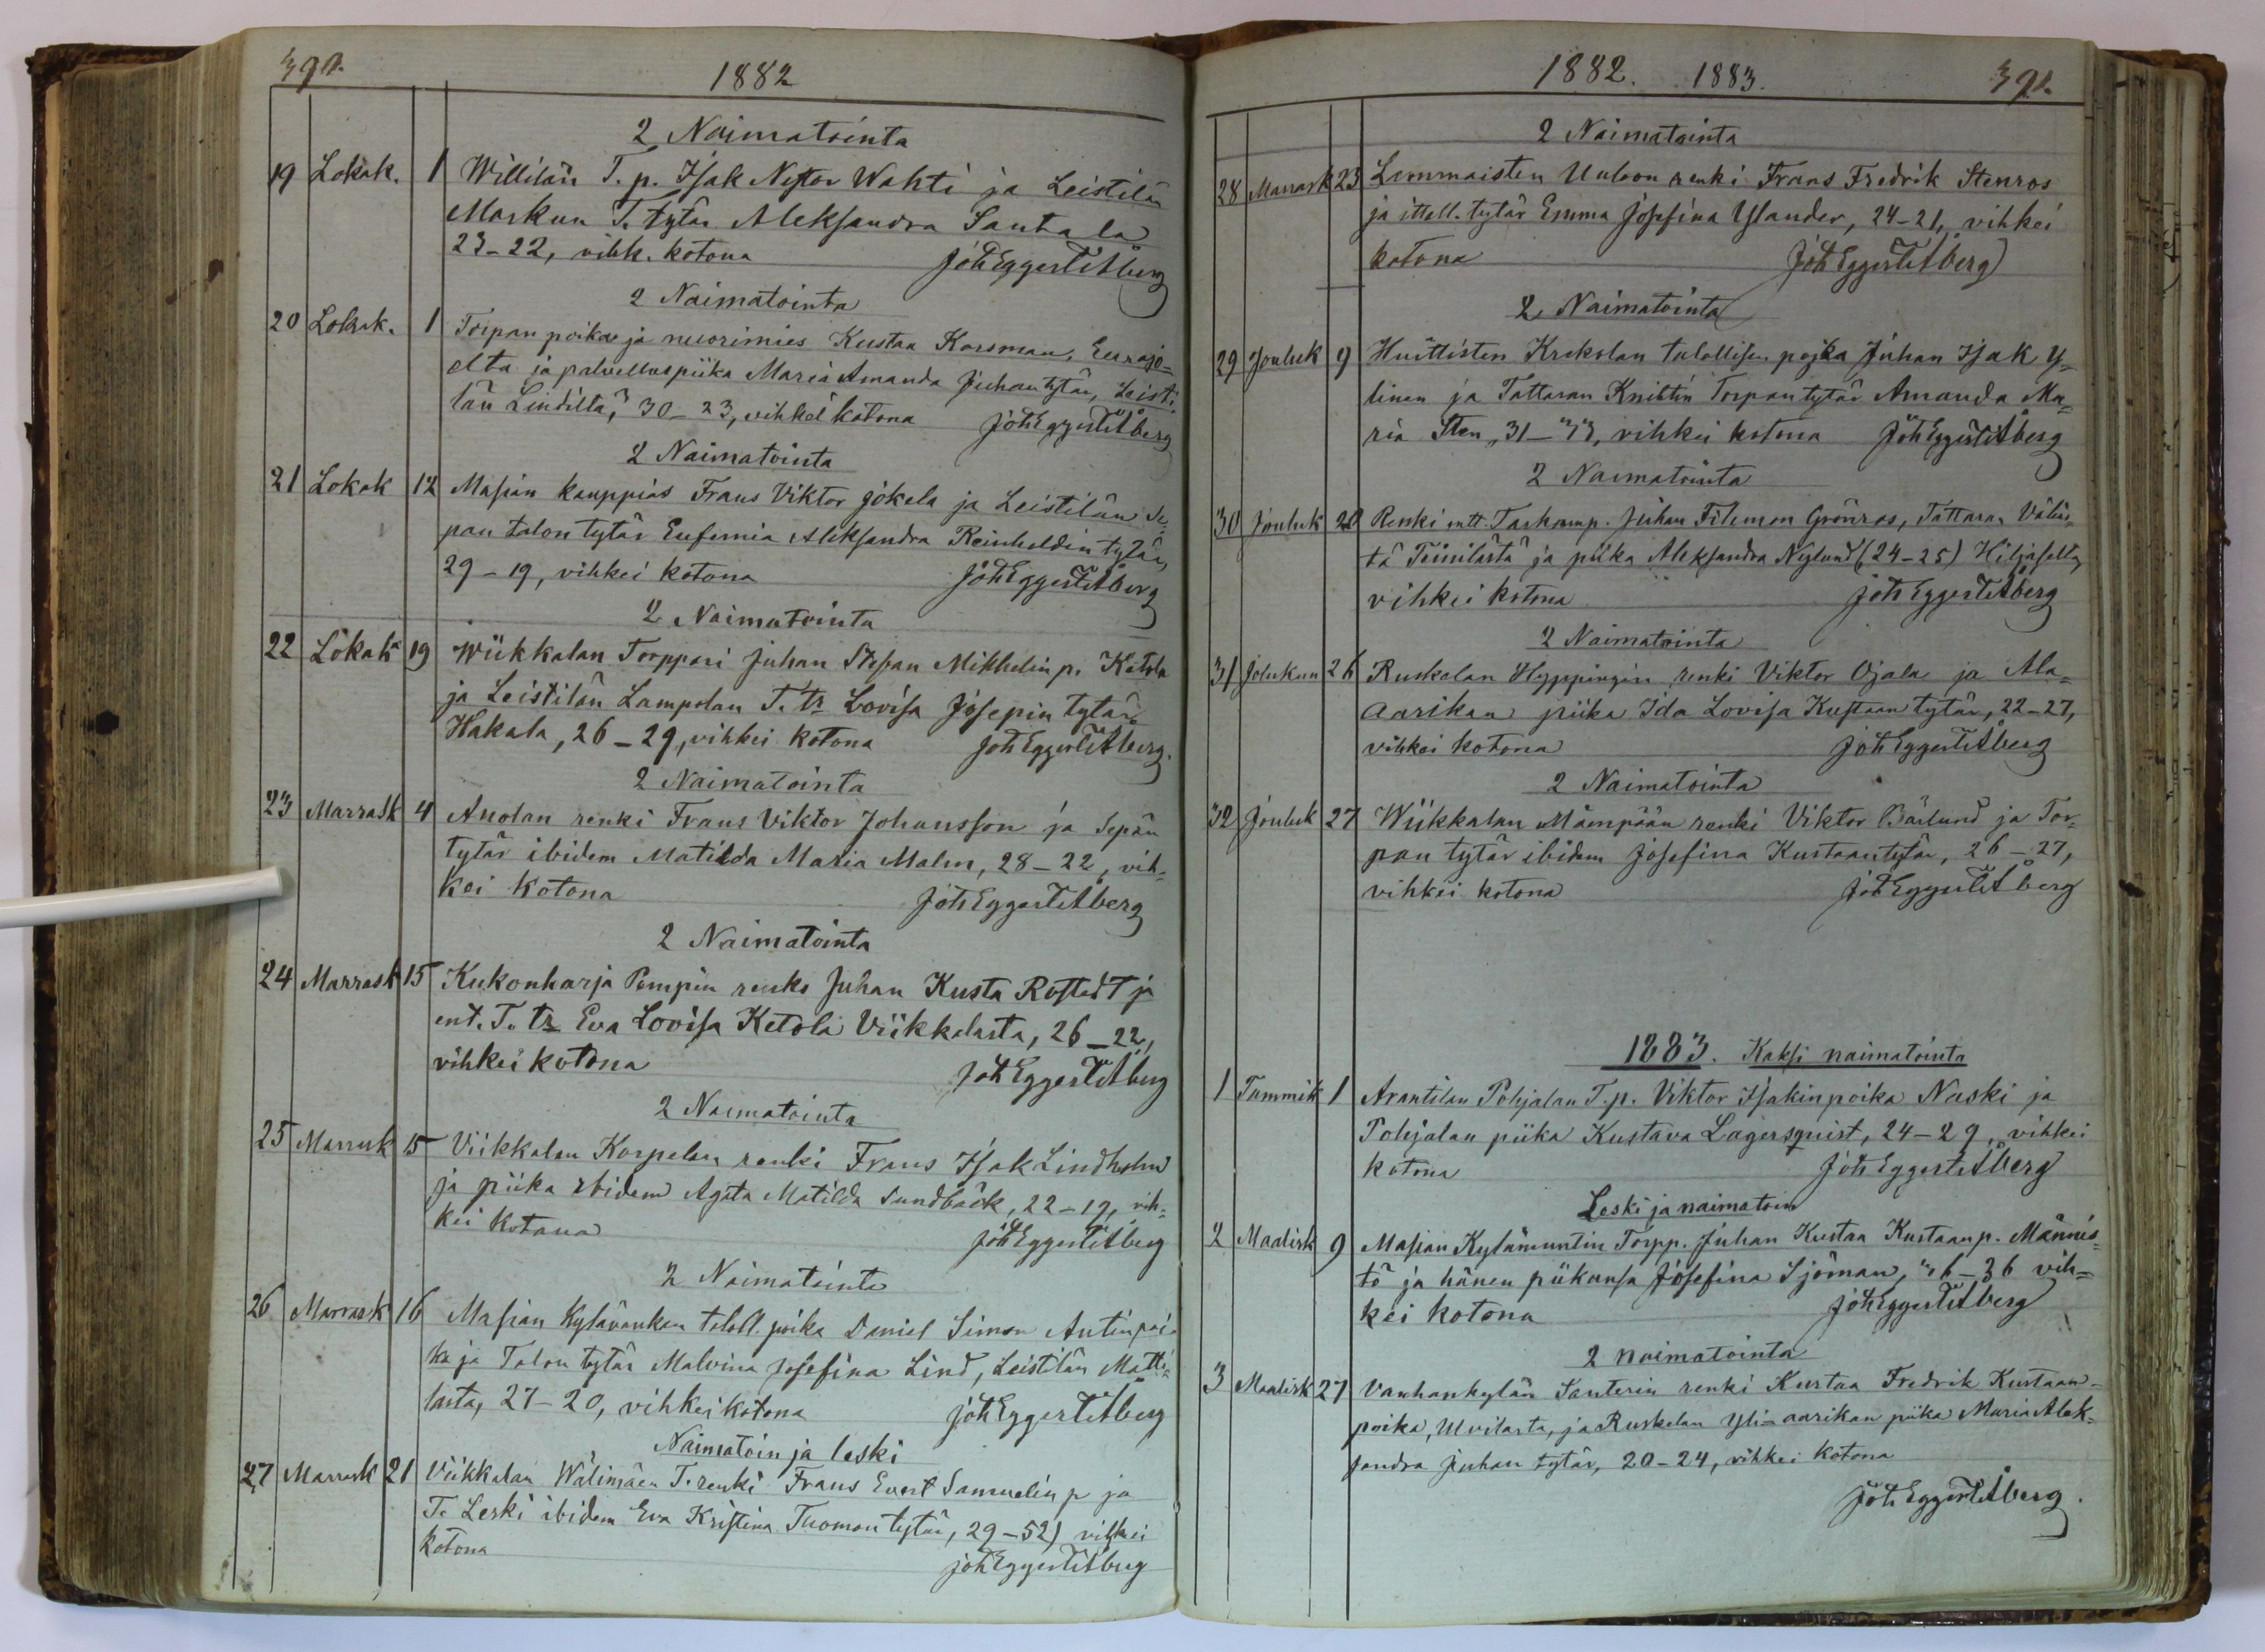 390.
1882
2 Naimatointa
19 Lokak. 1 Willilän T. p. Isak Nestor Wahti ja Leistilän
Markun T. tytär Aleksandra Santala
23-22, vihk. kotona Joh Eggert Åberg
2 Naimatointa
20 Lokak. 1 Torpan poika ja nuorimies Kustaa Korsman, Eurajo=
elta ja palvelluspiika Maria Amanda Juhantytär, Leisti=
län Lindiltä, 30-23, vihkei kotona Joh Eggert Åberg
2 Naimatointa
21 Lokak 12 Masian kauppias Frans Viktor Jokela ja Leistilän Se=
pän talon tytär Eufemia Aleksandra Reinholdin tytär,
29-19, vihkei kotona Joh Eggert Åberg
2 Naimatointa
22 Lokak 19 Wiikkalan Torppari Juhan Stefan Mikkelin p. Ketola
ja Leistilän Lampolan T. tr Lovisa Josepin tytär
Hakala, 26-29, vihkei kotona Joh Eggert Åberg.
2 Naimatointa
23 Marrask 4 Anolan renki Frans Viktor Johansson ja Sepän
tytär ibidem Matilda Maria Malm, 28-22, vih=
kei kotona Joh Eggert Åberg
2 Naimatointa
24 Marrask 15 Kukonharja Pempin renki Juhan Kusta Rostedt ja
ent. T. tr Eva Lovisa Ketola Viikkalasta, 26-22,
vihkei kotona Joh Eggert Åberg
2 Naimatointa
25 Marrask 15 Viikkalan Korpelan renki Frans Isak Lindholm
ja piika ibidem Agata Matilda Sundbäck, 22-19, vih=
kei kotona Joh Eggert Åberg
2 Naimatointa
26 Marrask 16 Masian Kylävankan taloll. poika Daniel Simon Antinpoi=
ka ja Talon tytär Malvina Josefina Lind, Leistilän Matti=
lasta, 27-20, vihkei kotona Joh Eggert Åberg
Naimatoin ja leski
27 Marrask 21 Viikkalan Wälimäen T. renki Frans Evert Samuelin p ja
T. Leski ibidem Eva Kristina Tuomon tytär, 29-52) vihkei
kotona Joh Eggert Åberg
1882. 1883.
391.
2 Naimatointa
28 Marrask 23 Lemmaisten Uuloon renki Frans Fredrik Stenros
ja ittell. tytär Emma Josefina Ylander, 24-21, vihkei
kotona Joh Eggert Åberg
2 Naimatointa
29 Jouluk 9 Huittisten Krekolan talollisen pojka Juhan Isak Y=
linen ja Tattaran Knihtin Torpan tytär Amanda Ma=
ria Sten, 31- vihkei kotona Joh Eggert Åberg
2 Naimatointa
30 Jouluk 20 Renki Juhan Filemon Grönros, Tattaran
ja piika Aleksandra Nylund (24-25)
vihkei kotona Joh Eggert Åberg
2 Naimatointa
31 Joulukun 26 Ruskalan Hyppingin renki Viktor Ojala ja Ala=
aarikan piika Ida Lovisa Kustaan tytär, 22-27,
vihkei kotona Joh Eggert Åberg
2 Naimatointa
32 Jouluk 27 Wiikkalan Mämpään renki Viktor Bärlund ja Tor=
pan tytär ibidem Josefina Kustaantytär, 26-27,
vihkei kotona Joh Eggert Åberg
1883. Kaksi naimatointa
1 Tammik 1 Arantilan Pohjalan T. p. Viktor Isakinpoika Naski ja
Pohjalan piika Kustava Lagerqvist, 24-29, vihkei
kotona Joh Eggert Åberg
Leski ja naimatoin
2 Maalisk 9 Masian Kylämuntin Torpp. Juhan Kustaa Kustaanp. Männis=
tö ja hänen piikansa Josefina Sjöman, 36 vih=
kei kotona Joh Eggert Åberg
2 naimatointa
3 Maalisk 27 Vanhankylän Santerin renki Kustaa Fredrik Kustaan=
poika, Ulvilasta, ja Ruskelan Yli=aarikan piika Maria Alek=
sandra Juhan tytär, 20-24, vihkei kotona
Joh Eggert Åberg.